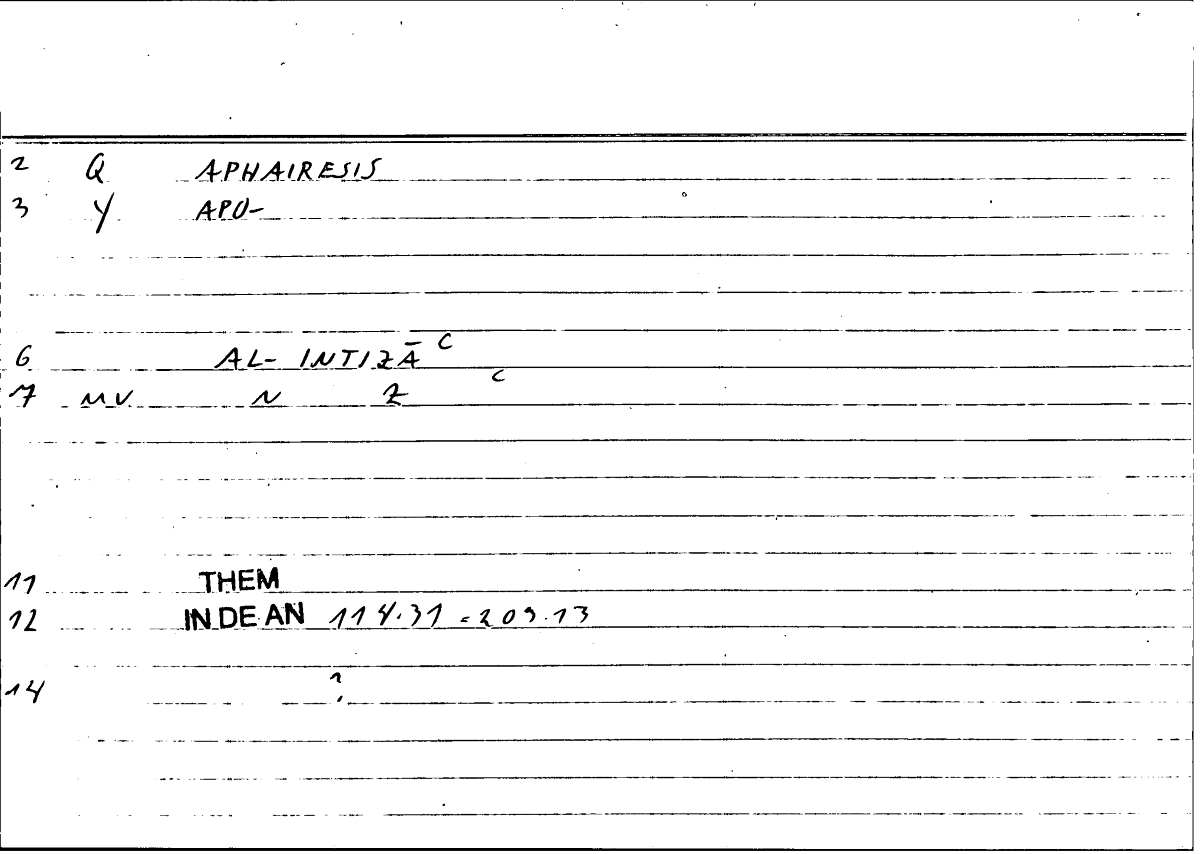 2 Q APHAIRESIS
3 Y APO-
6 AL- INTIZĀ C
7 MV N Z C
11 THEM
12 IN DE AN 114.31 = 209.13
14 ?